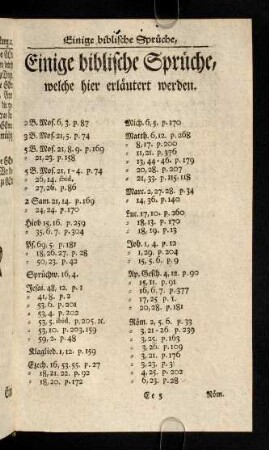 Einige biblische Sprüche,
Einige biblische Sprüche,
welche hier erläutert werden.
2 B. Mos. 6, 3. p. 87
3 B. Mos. 21, 5. p. 74
5 B. Mos. 21, 8. 9. p. 169
= 21, 23. p. 158
5 B. Mos. 21, 1-4. p. 74
= 26, 14. ibid.
= 27, 26. p. 86
2 Sam. 21, 14. p. 169
= 24, 24. p. 170
Hiob 15, 16. p. 259
= 35, 6. 7. p. 304
Ps. 69, 5. p. 181
= 18, 26. 27. p. 28
= 50, 23. p. 42
Sprüchw. 16, 4.
Jesai. 48, 12. p. 1
= 41, 8. p. 2
= 53, 6. p. 201
= 53, 4. p. 202
= 53, 5. ibid. p. 205. ꝛc.
= 53, 10. p. 203. 159
= 59, 2. p. 48
Klaglied. 1, 12. p. 159
Ezech. 16, 53. 55. p. 27
= 18, 21. 22. p. 92
= 18, 20. p. 172
Mich. 6, 5. p. 170
Matth. 6, 12. p. 268
= 8, 17. p. 200
= 11, 21. p. 376
= 13, 44-46. p. 179
= 20, 28. p. 207
= 21, 33. p. 115. 118
Marc. 2, 27. 28. p. 34
= 14, 36. p. 140
Luc. 17, 10. p. 260
= 18, 13. p. 170
= 18, 19. p. 13
Joh. 1, 4. p. 12
= 1, 29. p. 204
= 15, 5. 6. p. 9
Ap. Gesch. 4, 12. p. 90
= 15, 11. p. 91
= 16, 6. 7. p. 377
= 17, 25. p. 1.
= 20, 28. p. 181
Röm. 2, 5. 6. p. 33
= 2, 21. 23. p. 239. 241
= 3, 25. p. 163
= 3, 26. p. 109
= 3, 21. p. 176
= 3, 23. p. 3
= 4, 25. p. 202
= 6, 23. p. 28
Röm.